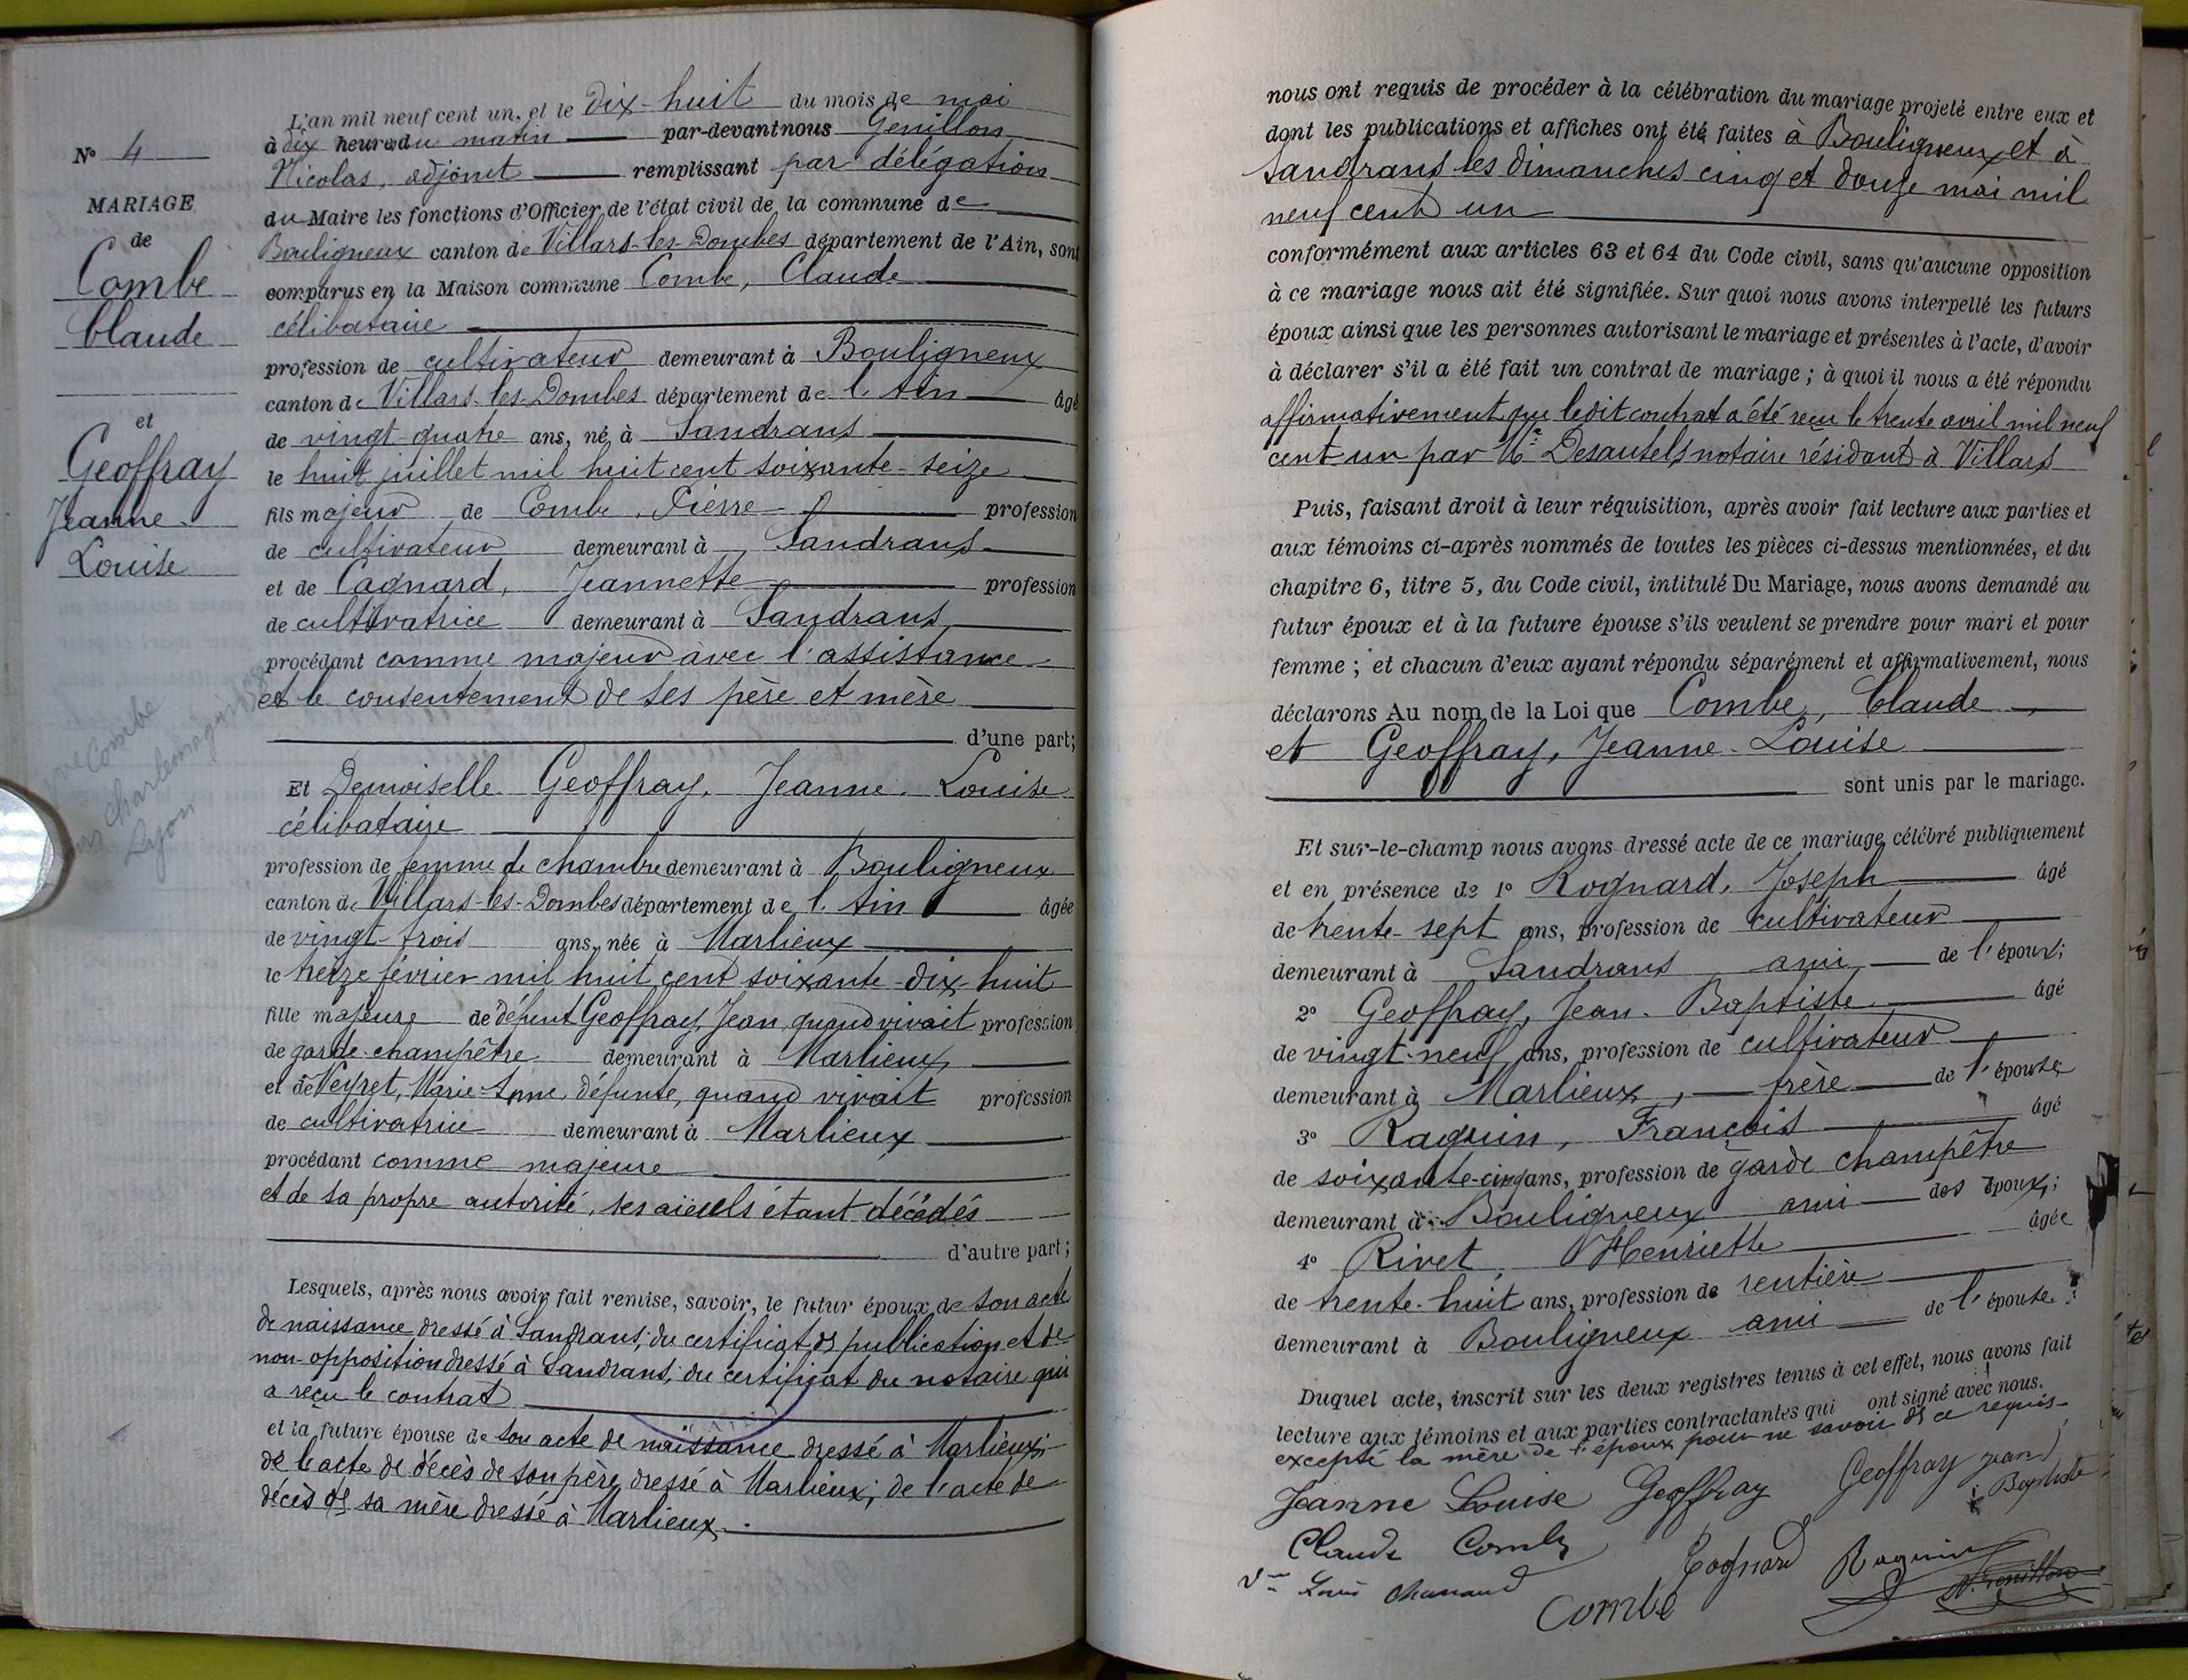 N° 4
MARIAGE
de
Combe
Claude
et
Geoffray
Jeanne
Louise
L'an mil neuf cent un, et le dix-huit du mois de mai
à dix heures du matin par-devant nous Genillon
Nicolas, adjoint remplissant par délégation
du Maire les fonctions d'Officier de l'état civil de la commune de
Bouligneux canton de Villars-les-Dombes département de l'Ain, sont
comparus en la Maison commune Combe, Claude
célibataire
profession de cultivateur demeurant à Bouligneux
canton de Villars-les-Dombes département de l'Ain âgé
de vingt-quatre ans, né à Sandrans
le huit juillet mil huit cent soixante-seize
fils majeur de Combe, Pierre profession
de cultivateur demeurant à Sandrans
et de Cagnard, Jeannette profession
de cultivatrice demeurant à Sandrans,
procédant comme majeur avec l'assistance
et le consentement de ses père et mère
d'une part;
Combe
Charlemagne 58
Lyon
Et Demoiselle Geoffray, Jeanne-Louise
célibataire
profession de femme de chambre demeurant à Bouligneux
canton de Villars-les-Dombes département de l'Ain âgée
de vingt-trois ans, née à Marlieux
le treize février mil huit cent soixante-dix-huit
fille majeure de défunt Geoffray, Jean, quand vivait profession
de garde-champêtre demeurant à Marlieux,
et de Veyret, Marie-Anne, défunte, quand vivait profession
de cultivatrice demeurant à Marlieux
procédant comme majeure
et de sa propre autorité, ses aïeuls étant décédés
d'autre part;
Lesquels, après nous avoir fait remise, savoir, le futur époux de son acte
de naissance dressé à Sandrans; du certificat de publication et de
non-opposition dressé à Sandrans; du certificat du notaire qui
a reçu le contrat
et la future épouse de son acte de naissance dressé à Marlieux;
de l'acte de décès de son père dressé à Marlieux; de l'acte de
décès de sa mère dressé à Marlieux.
nous ont requis de procéder à la célébration du mariage projeté entre eux et
dont les publications et affiches ont été faites à Bouligneux et à
Sandrans les dimanches cinq et douze mai mil
neuf cent un
conformément aux articles 63 et 64 du Code civil, sans qu'aucune opposition
à ce mariage nous ait été signifiée. Sur quoi nous avons interpellé les futurs
époux ainsi que les personnes autorisant le mariage et présentes à l'acte, d'avoir
à déclarer s'il a été fait un contrat de mariage; à quoi il nous a été répondu
affirmativement que ledit contrat a été reçu le trente avril mil neuf
cent un par Me Desautels notaire résidant à Villars
Puis, faisant droit à leur réquisition, après avoir fait lecture aux parties et
aux témoins ci-après nommés de toutes les pièces ci-dessus mentionnées, et du
chapitre 6, titre 5, du Code civil, intitulé Du Mariage, nous avons demandé au
futur époux et à la future épouse s'ils veulent se prendre pour mari et pour
femme; et chacun d'eux ayant répondu séparément et affirmativement, nous
déclarons Au nom de la Loi que Combe, Claude
et Geoffray, Jeanne-Louise
sont unis par le mariage.
Et sur-le-champ nous avons dressé acte de ce mariage célébré publiquement
et en présence de 1° Rognard, Joseph âgé
de trente-sept ans, profession de cultivateur
demeurant à Sandrans ami de l'époux;
2° Geoffray, Jean-Baptiste âgé
de vingt-neuf ans, profession de cultivateur
demeurant à Marlieux, frère de l'épouse
3° Raguin, François âgé
de soixante-cinq ans, profession de garde champêtre
demeurant à Bouligneux ami des époux;
4° Rivet, Henriette âgée
de trente-huit ans, profession de rentière
demeurant à Bouligneux ami de l'épouse;
Duquel acte, inscrit sur les deux registres tenus à cet effet, nous avons fait
lecture aux témoins et aux parties contractantes qui ont signé avec nous.
excepté la mère de l'époux pour ne savoir de ce requis.
Jeanne Louise Geoffray Geoffray Jean
Baptiste
Claude Combe
Rognard Raguin
Vve Louis
Combe
N. Genillon